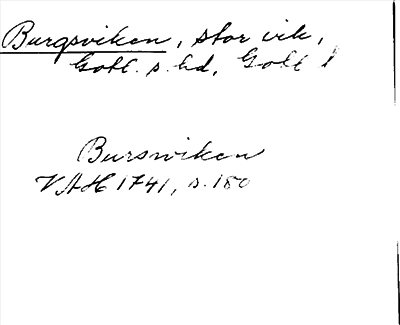 Burgsviken, stor vik,
Gotl. s. hd, Gotl l
Burswiken
VAH 1741, s. 180